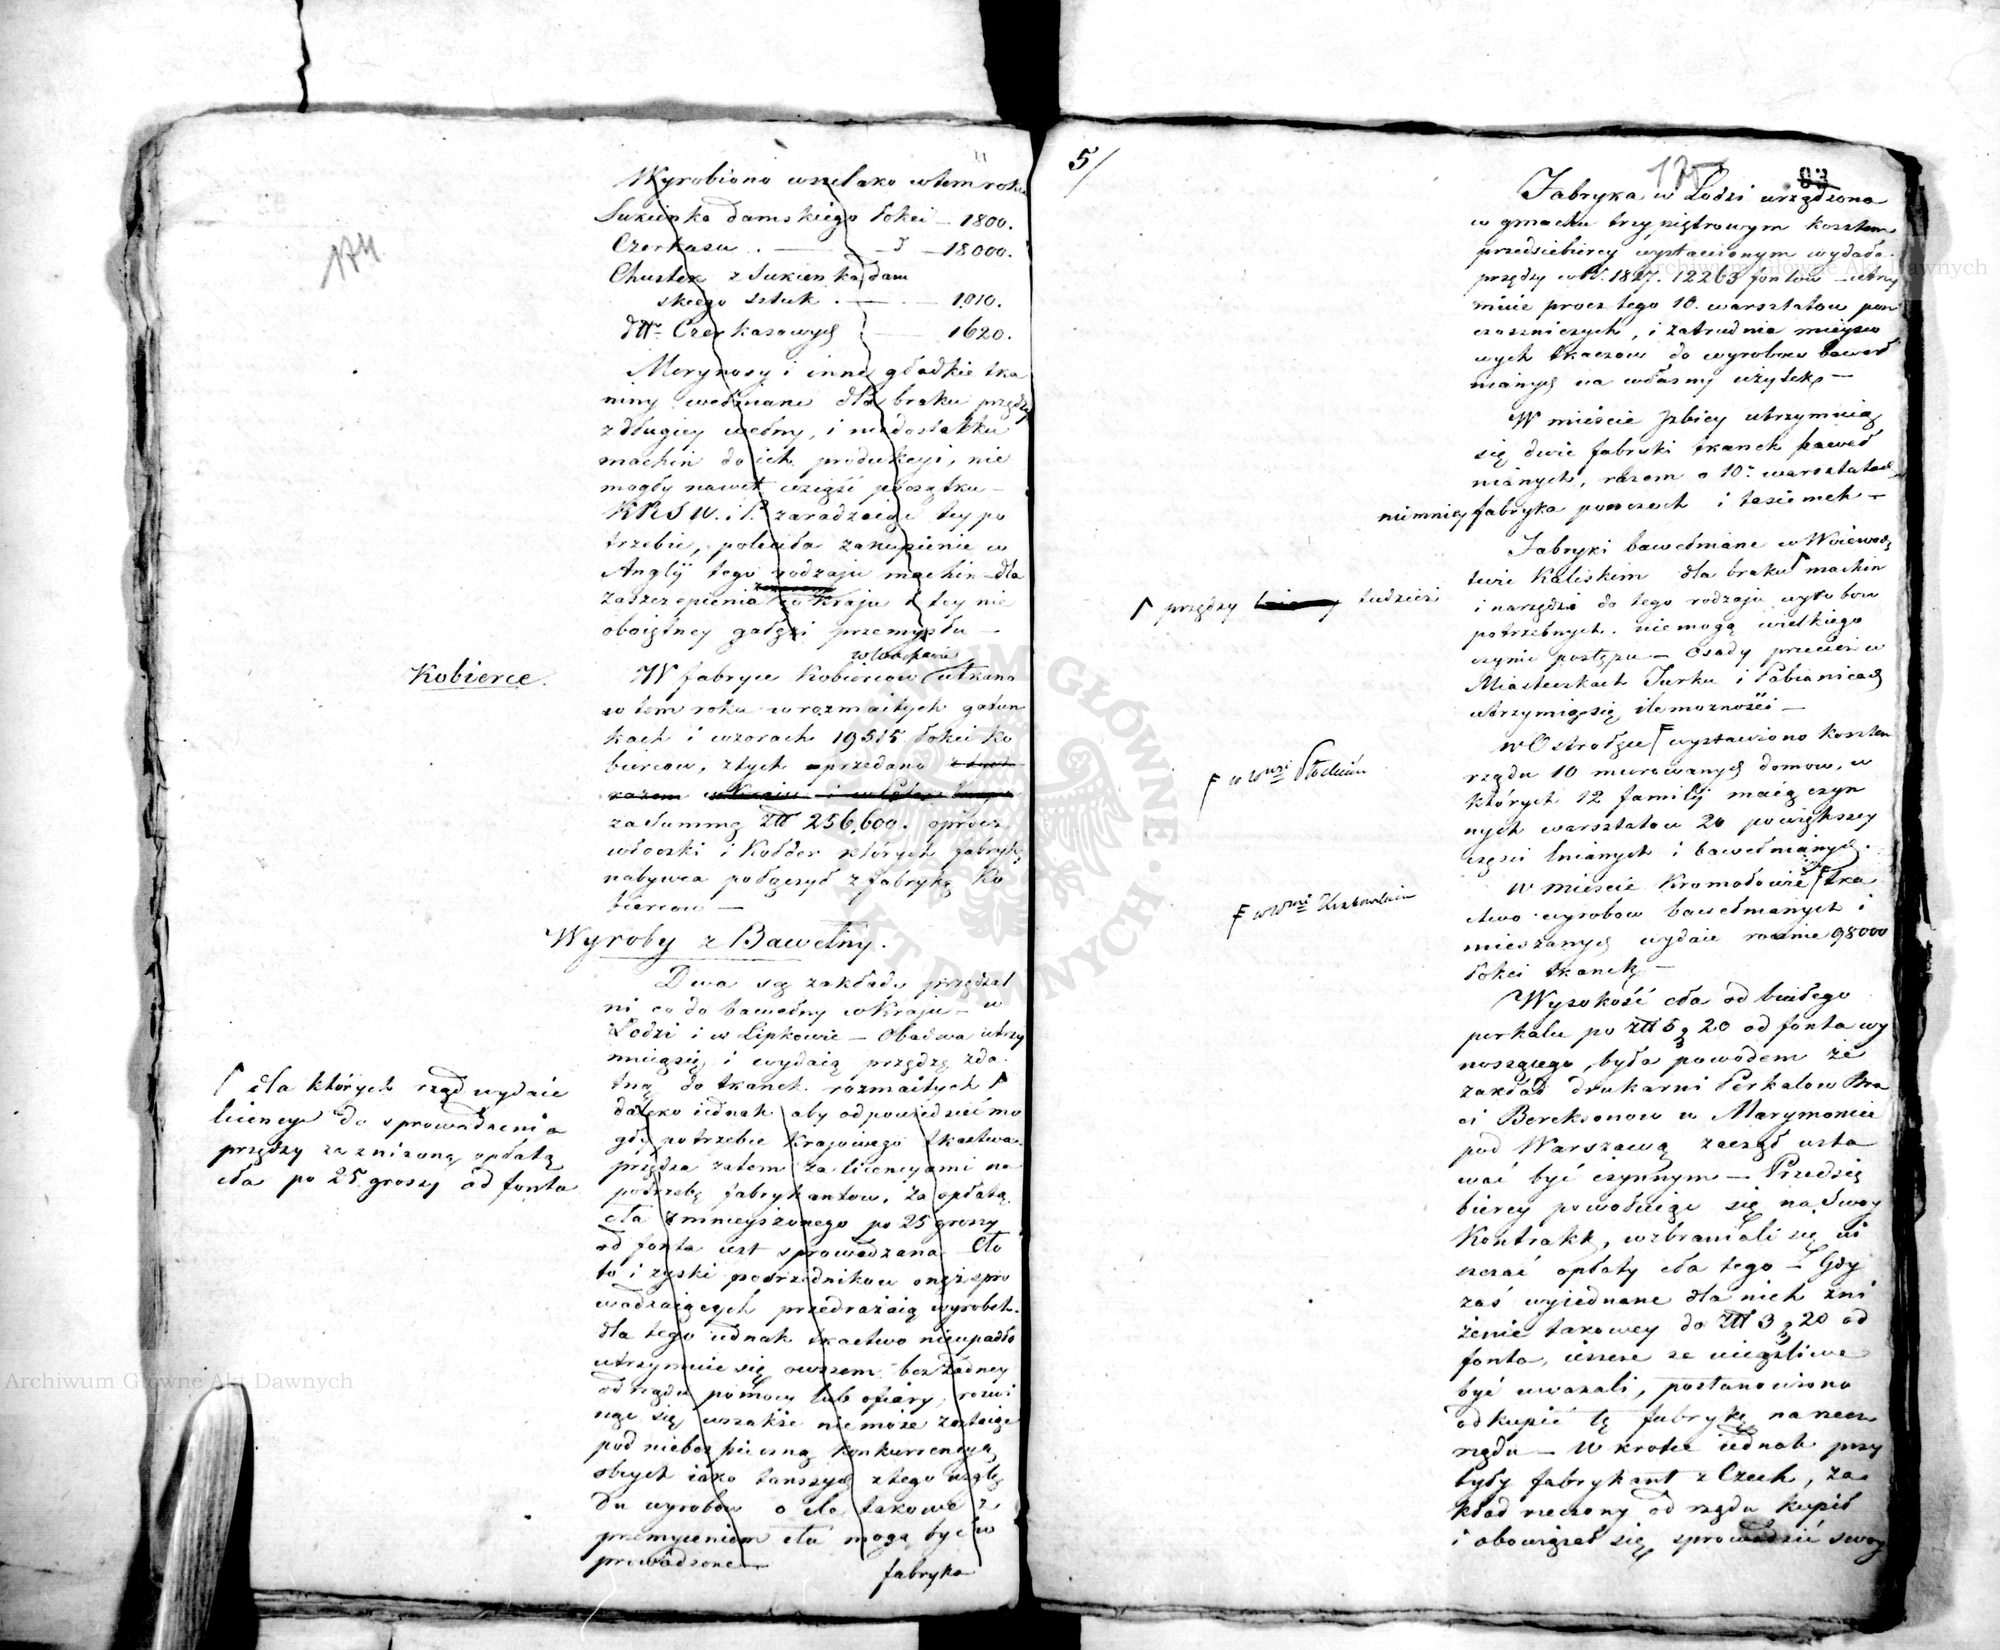 174
Wyrobiono wszelako w tem roku
Sukienka damskiego łokci — 1800.
Czerkasu . — — 18000.
Chustek z Sukienka dam
skiego sztuk . — — 1010.
dtto Czerkasowych — 1620.
Merynosy i inne gładkie tka
niny wełniane dla braku przędzy
z długiey wełny, i niedostatku
machin do ich produkcyi, nie
mogły nawet wziąść początku —
KRSW. i P. zaradzaiąc tey po
trzebie, poleciła zakupienie w
Anglij tego rodzaju machin dla
zaszczepienia w kraju tey nie
oboiętney gałęzi przemysłu —
Kobierce.
W fabryce Kobiercow utkano
w tem roku w rozmaitych gatun
kach i wzorach 19515 łokci ko
biercow, z tych sprzedano
za Summę Złł 256,600. oprócz
włoczki i Kołder których fabrykę
nabywca połączył z fabryką Ko
biercow —
Wyroby z Bawełny.
Dwa są zakłady przędzal
ni co do bawełny w Kraju — w
Lodzi i w Lipkowie — Obadwa utrzy
muią się i wydaią przędzę zda
tną do tkanek rozmaitych
Γ dla których rząd wydaie
licencye do sprowadzenia
przędzy za zniżoną opłatą
cła po 25 groszy od fonta
daleko iednak aby odpowiedzieć mo
gły potrzebie Krajowego tkactwa
przędza zatem za licencyami na
potrzebę fabrykantow, za opłatą
cła zmnieyszonego po 25 groszy
od fonta iest sprowadzana Cło
to i zyski pośrzednikow onęż spro
wadzaiących przedrażaią wyrobek.
dla tego iednak tkactwo nieupadło
utrzymuie się owszem bez żadney
od rządu pomocy lub ofiary, rozwi
nąć się wszakże nie może zostaiąc
pod niebezpieczną konkurencyą
obcych iako tanszych z tego wzglę
du wyrobow o ile takowe z
przemyceniem cła mogą być w
prowadzone —
fabryka
5/
125
83
Fabryka w Lodzi urządzona
w gmachu trzypiętrowym kosztem
przedsiębiercy wystawionym wydała
przędzy w R. 1827. 12263 fontow — utrzy
muie procz tego 10. warsztatow pon
czoszniczych, i zatrudnia mieysco
wych tkaczow do wyrobow baweł
nianych na własny użytek —
W mieście Izbicy utrzymuią
się dwie fabryki tkanek baweł
nianych, razem o 10. warsztatach
niemniey fabryka ponczoch i tasiemek —
Fabryki bawełniane w Woiewodz
twie Kaliskim dla braku Γ machin
Γ przędzy tudzież
i narzędzi do tego rodzaju wyrobow
potrzebnych. niemogą wielkiego
czynić postępu — Osady przecież w
Miasteczkach Turku i Pabianicach
utrzymią się ile możności —
w Ostrołęce F wystawiono kosztem
F w Wdztwie Płockim
rządu 10 murowanych domow, w
których 12 familij maią czyn
nych warsztatow 20 powiększey
części lnianych i bawełnianych.
w mieście Kromołowie F tka
ctwo wyrobow bawełnianych i
mieszanych wydaie rocznie 98000
łokci tkanek —
Wysokość cła od białego
perkalu po Złł 5 g 20 od fonta wy
noszącego, była powodem że
zakład drukarni Perkalow Bra
ci Bereksonow w Marymoncie
pod Warszawą zaczął usta
wać być czynnym — Przedsię
biercy powołuiąc się na Swoy
Kontrakt, wzbraniali się ui
szczać opłaty cła tego — Gdy
zaś wyiednane dla nich zni
żenie takowey do Złł 3 g 20 od
fonta, ieszcze za uciążliwe
być uważali, postanowiono
odkupić tę fabrykę na rzecz
rządu — w krotce iednak przy
były fabrykant z Czech, za
kład rzeczony od rządu kupił
i obowiązał się, sprowadzić swoy
Archiwum Główne Akt Dawnych
Archiwum Główne Akt Dawnych
ARCHIWUM GŁÓWNE AKT DAWNYCH